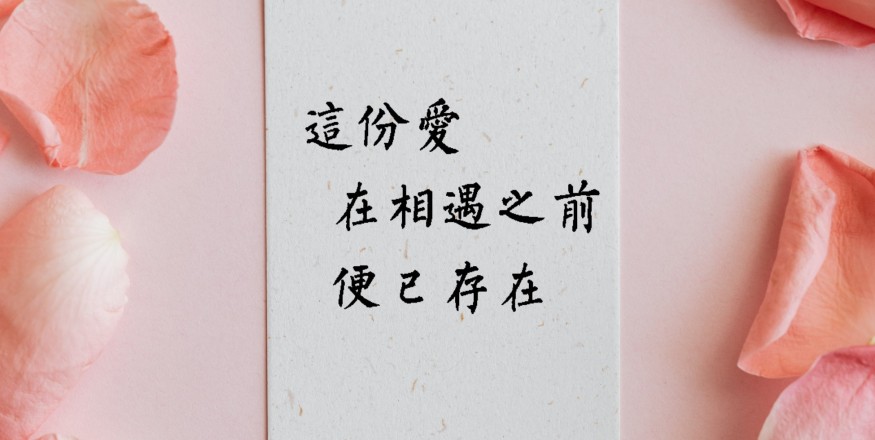 這份愛
在相遇之前
便已存在